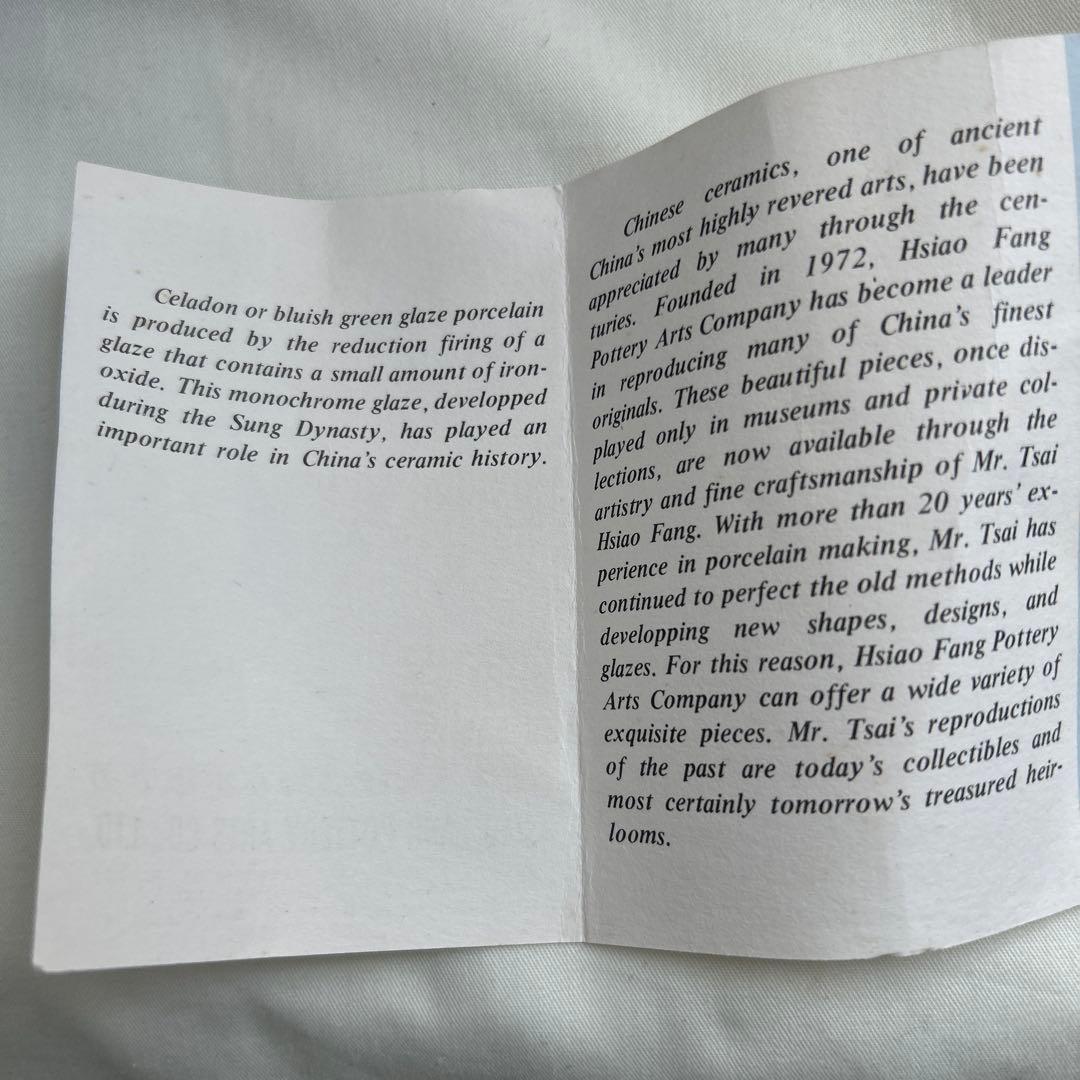 Celadon or bluish green glaze porcelain
is produced by the reduction firing of a
glaze that contains a small amount of iron-
oxide. This monochrome glaze, developped
during the Sung Dynasty, has played an
important role in China's ceramic history.
Chinese ceramics, one of ancient
China's most highly revered arts, have been
appreciated by many through the cen-
turies. Founded in 1972, Hsiao Fang
Pottery Arts Company has become a leader
in reproducing many of China's finest
originals. These beautiful pieces, once dis-
played only in museums and private col-
lections, are now available through the
artistry and fine craftsmanship of Mr. Tsai
Hsiao Fang. With more than 20 years' ex-
perience in porcelain making, Mr. Tsai has
continued to perfect the old methods while
developping new shapes, designs, and
glazes. For this reason, Hsiao Fang Pottery
Arts Company can offer a wide variety of
exquisite pieces. Mr. Tsai's reproductions
of the past are today's collectibles and
most certainly tomorrow's treasured heir-
looms.